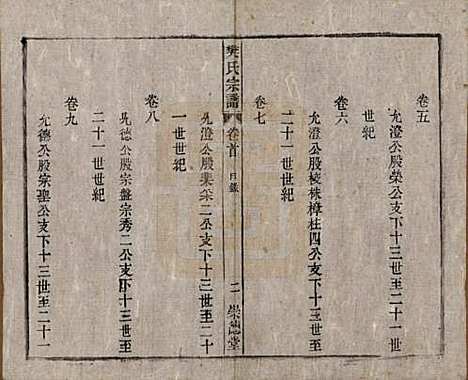 卷五
允澄公股榮公支下十三世至二十一世
世紀
卷六
允澄公股棱株樟柱四公支下十三世至
二十一世世紀
卷七
樊氏宗譜
卷首
目錄
二
崇德堂
允澄公股棐寀二公支下十三世至二十
一世世紀
卷八
允德公股宗盤宗秀二公支下十三世至
二十一世世紀
卷九
允德公股宗聖公支下十三世至二十一